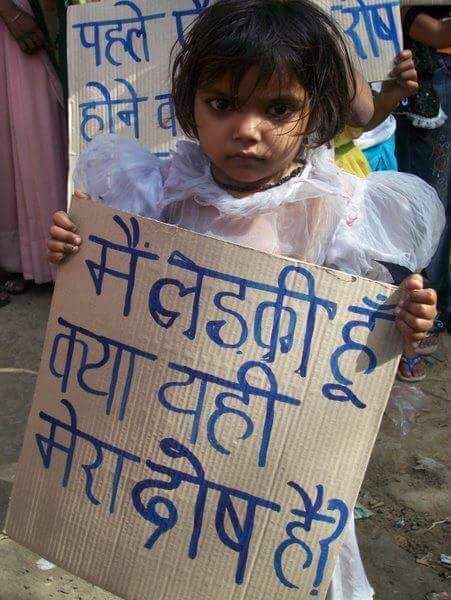 पहले
दोष
होने
मैं लड़की हूँ
क्या यही
मेरा दोष है?